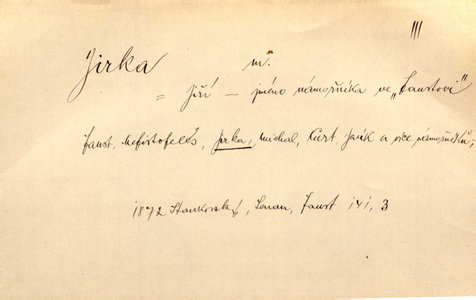 III
Jirka m.
= Jiří — jméno námořníka ve „Faustovi"
Faust, Mefistofeles, Jirka, Michal, Kurt, Janík a více námořníků;
1872 Stankovský, Louan, Faust 141, 3